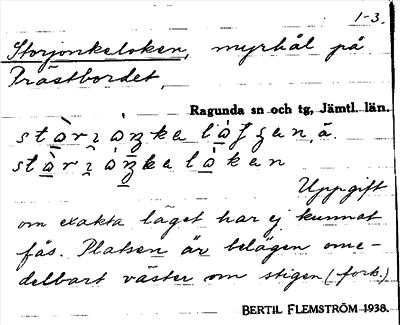 1-3.
Storjonkeloken, myrhål på
Prästbordet,
Ragunda sn och tg, Jämtl. län.
Uppgift
om exakta läget har ej kunnat
fås. Platsen är belägen ome-
delbart väster om stigen (forts.)
BERTIL FLEMSTRÖM 1938.